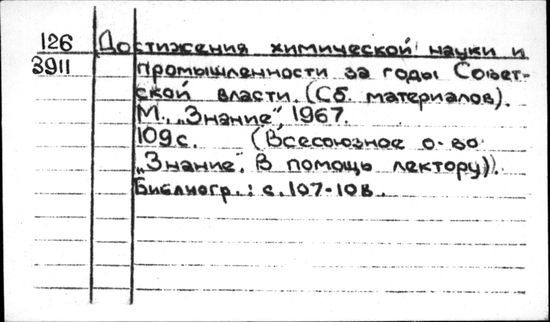 126 Достижения химической науки и
3911 промышленности за годы Совет-
ской власти. (Сб. материалов).
М., „Знание", 1967.
109с. (Всесоюзное о-во
„Знание". В помощь лектору)).
Библиогр.: с. 107-108.